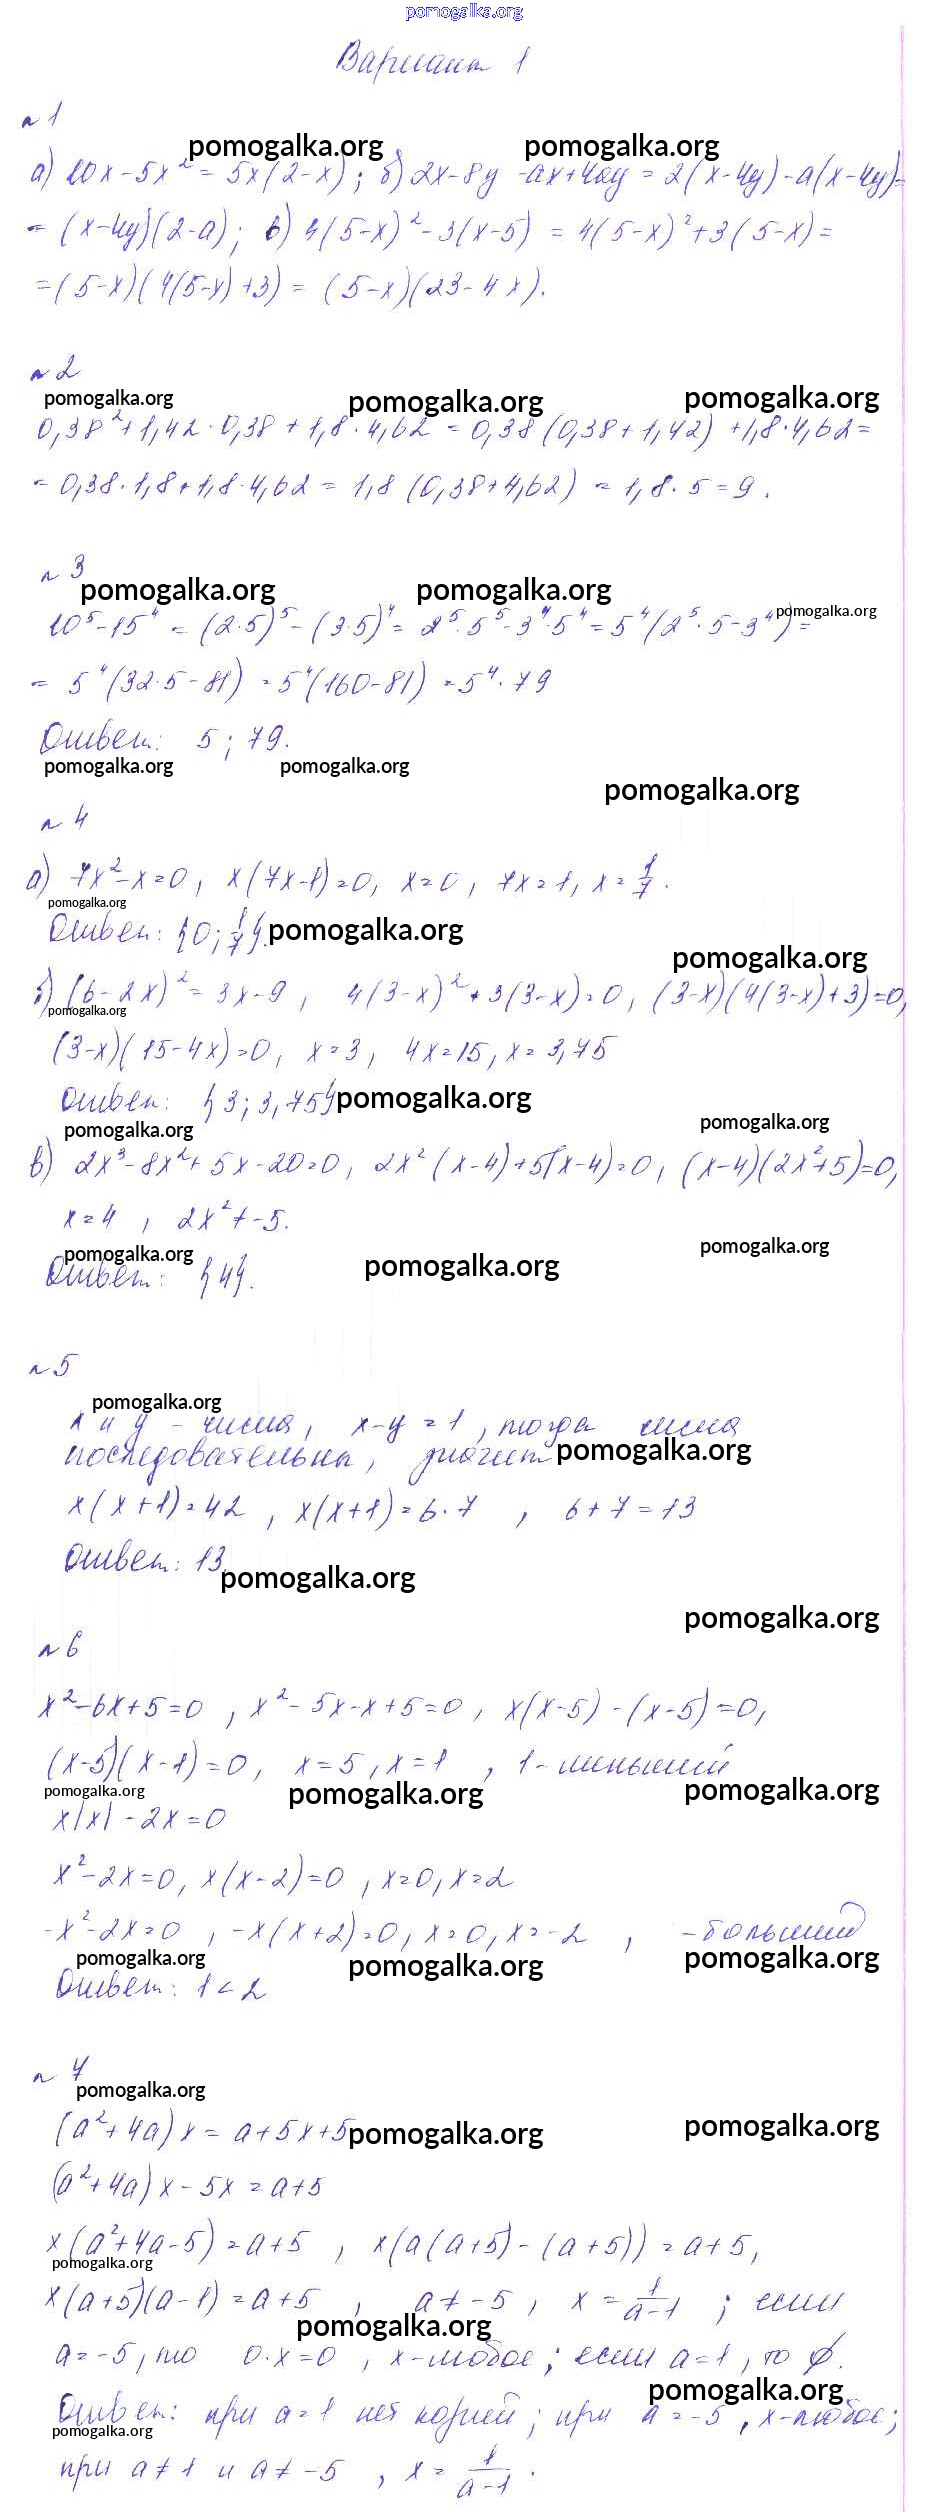 pomogalka.org
Вариант 1
№1
pomogalka.org pomogalka.org
а) 10x-5x² = 5x(2-x); б) 2x-8y-ax+4ay = 2(x-4y)-a(x-4y)=
= (x-4y)(2-a); в) 4(5-x)²-3(x-5) = 4(5-x)²+3(5-x)=
=(5-x)(4(5-x)+3) = (5-x)(23-4x).
№2
pomogalka.org pomogalka.org pomogalka.org
0,38²+1,42·0,38+1,8·4,62 = 0,38(0,38+1,42)+1,8·4,62=
= 0,38·1,8+1,8·4,62 = 1,8(0,38+4,62) = 1,8·5=9.
№3
pomogalka.org pomogalka.org pomogalka.org
10⁵-15⁴ = (2·5)⁵-(3·5)⁴= 2⁵·5⁵-3⁴·5⁴=5⁴(2⁵·5-3⁴)=
= 5⁴(32·5-81) = 5⁴(160-81) = 5⁴·79
Ответ: 5; 79.
pomogalka.org pomogalka.org pomogalka.org
№4
а) 7x²-x=0, x(7x-1)=0, x=0, 7x=1, x=1/7.
pomogalka.org
Ответ: {0; 1/7}. pomogalka.org
pomogalka.org
б) (6-2x)²=3x-9, 4(3-x)²+3(3-x)=0, (3-x)(4(3-x)+3)=0,
pomogalka.org
(3-x)(15-4x)=0, x=3, 4x=15, x=3,75
Ответ: {3; 3,75} pomogalka.org
pomogalka.org pomogalka.org
в) 2x³-8x²+5x-20=0, 2x²(x-4)+5(x-4)=0, (x-4)(2x²+5)=0,
x=4, 2x²≠-5.
pomogalka.org pomogalka.org pomogalka.org
Ответ: {4}.
№5
pomogalka.org
x и y - числа, x-y=1, тогда числа
последовательны, значит pomogalka.org
x(x+1)=42, x(x+1)=6·7, 6+7=13
Ответ: 13. pomogalka.org
pomogalka.org
№6
x²-6x+5=0, x²-5x-x+5=0, x(x-5)-(x-5)=0,
(x-5)(x-1)=0, x=5, x=1, 1-меньший
pomogalka.org pomogalka.org pomogalka.org
x|x|-2x=0
x²-2x=0, x(x-2)=0, x=0, x=2
-x²-2x=0, -x(x+2)=0, x=0, x=-2, -больший
pomogalka.org pomogalka.org pomogalka.org
Ответ: 1<2
№7
pomogalka.org
(a²+4a)x=a+5x+5 pomogalka.org pomogalka.org
(a²+4a)x-5x=a+5
x(a²+4a-5)=a+5, x(a(a+5)-(a+5))=a+5,
pomogalka.org
x(a+5)(a-1)=a+5, a≠-5, x=1/(a-1); если
pomogalka.org
a=-5, то 0·x=0, x-любое; если a=1, то ∅.
pomogalka.org
Ответ: при a=1 нет корней; при a=-5, x-любое;
pomogalka.org
при a≠1 и a≠-5, x=1/(a-1).